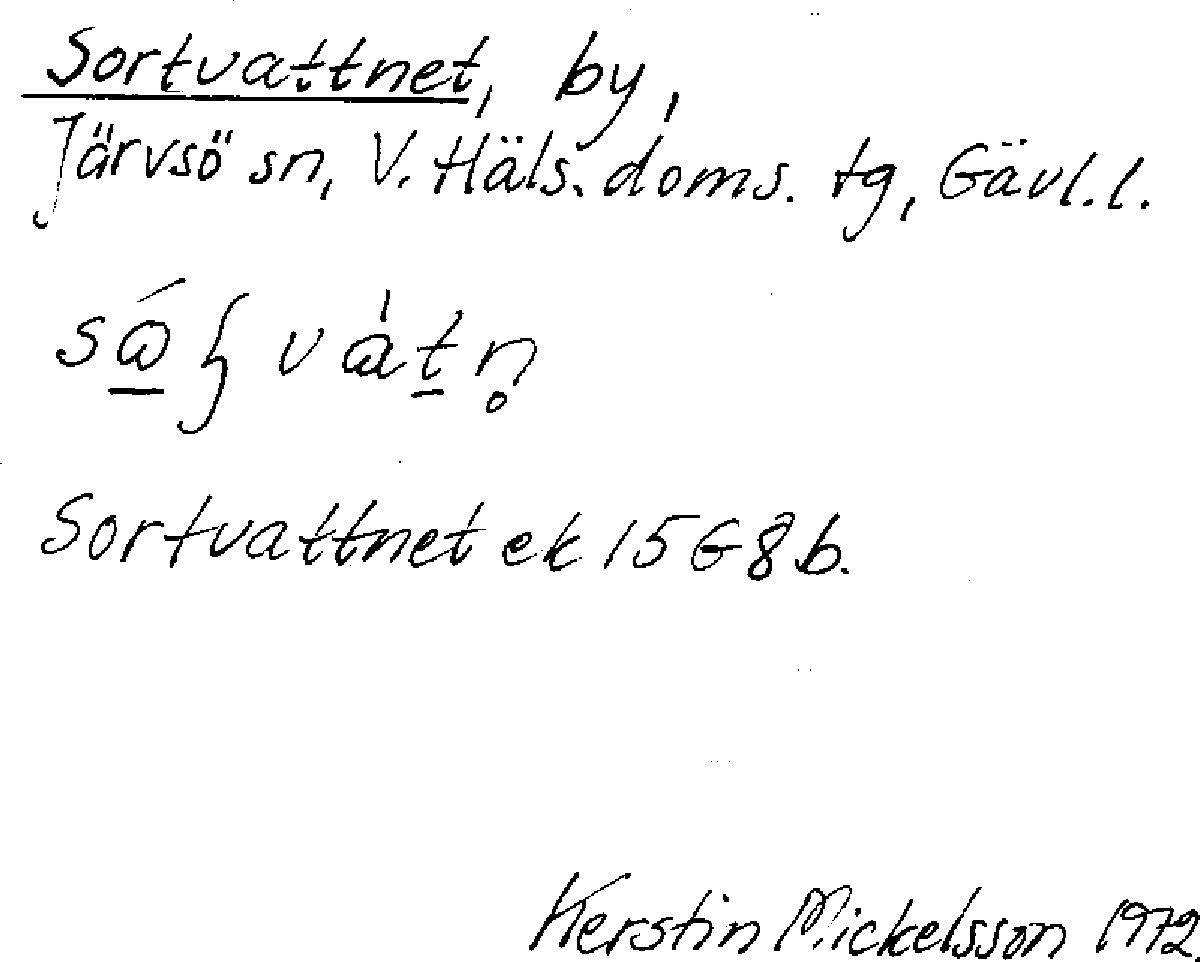 Sortvattnet, by,
Järvsö sn, V. Häls. doms. tg, Gävl. l.
Sortvattnet ek 15 G 8 b.
Kerstin Mickelsson 1972.